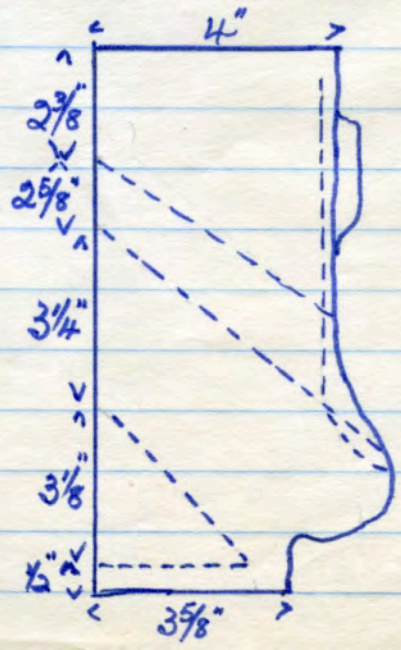 4"
2 3/8"
2 5/8"
3 1/4"
3 1/8"
1/2"
3 5/8"